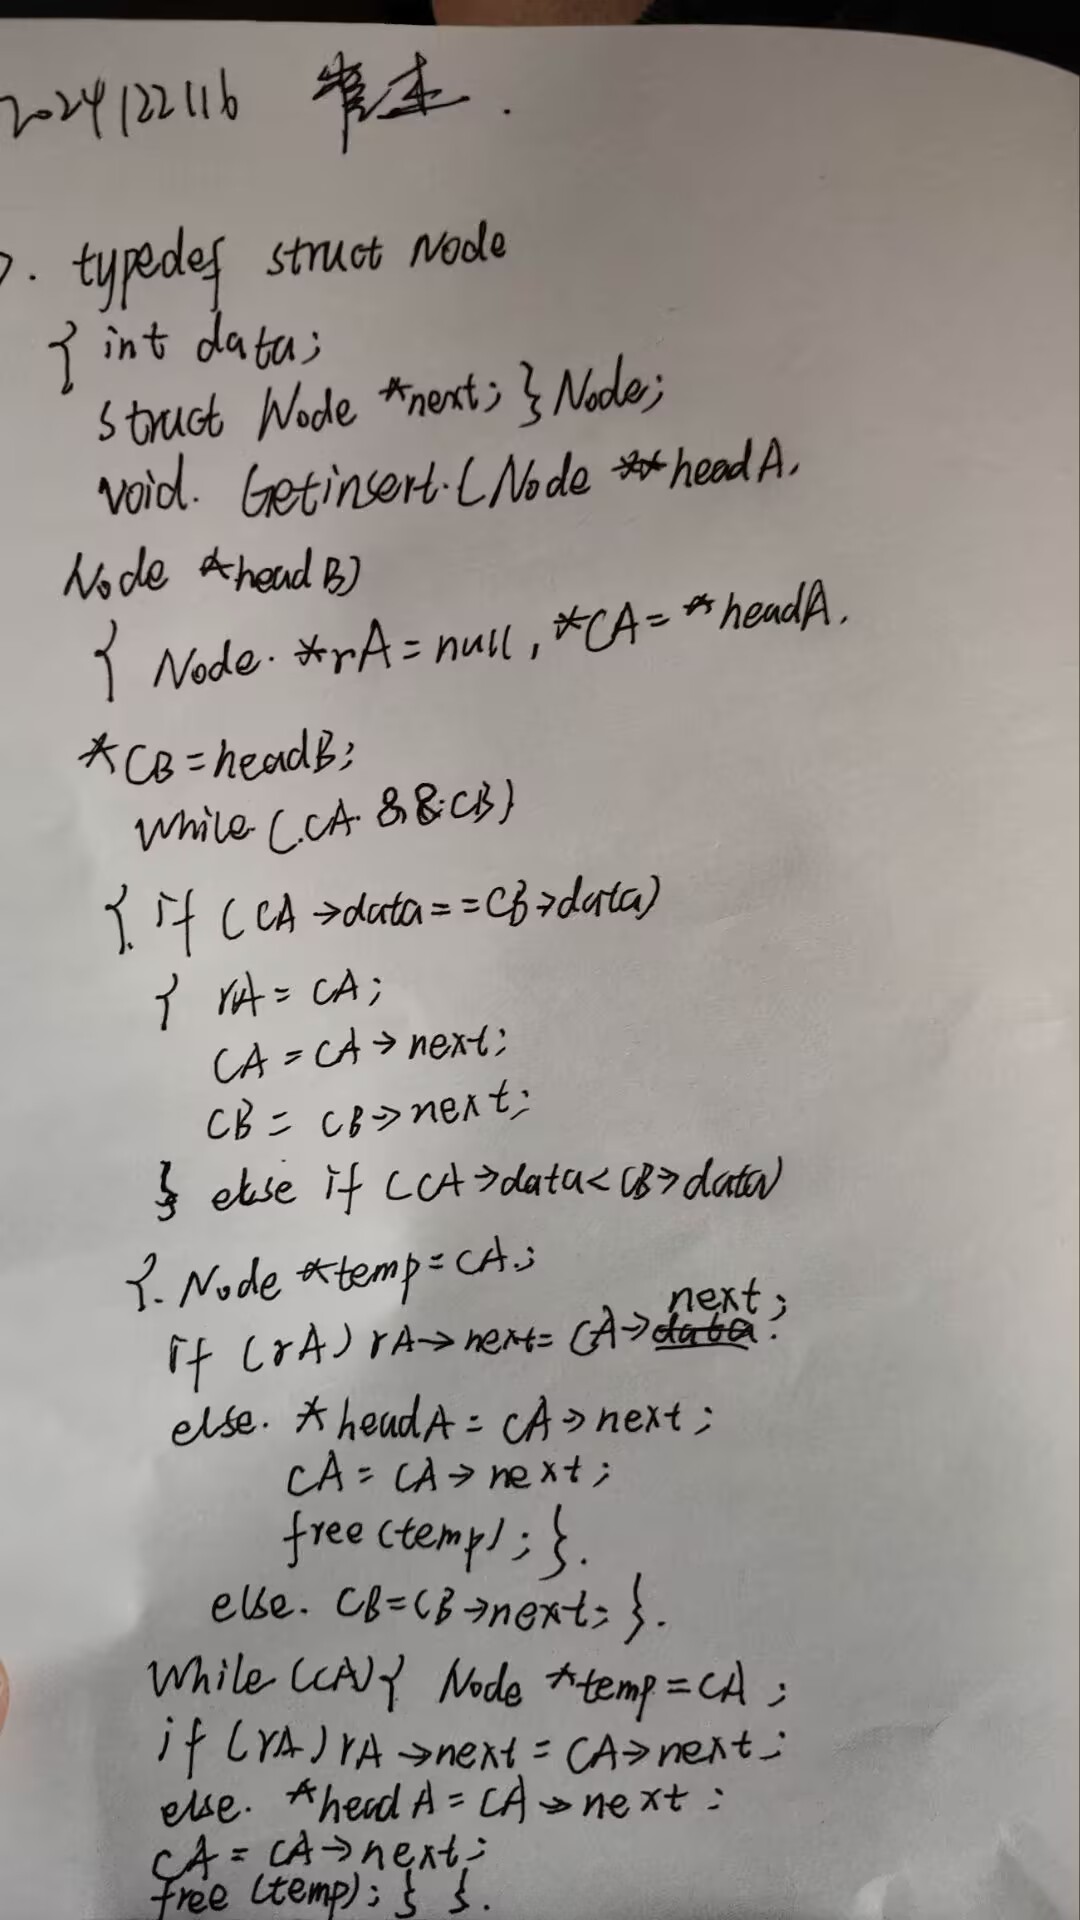 2024122116
. typedef struct Node
{ int data;
struct Node *next; } Node;
void. Getinsert.(Node **headA,
Node *headB)
{ Node. *rA = null, *CA = *headA,
*CB = headB;
while (.CA. && CB)
{. if (CA->data == CB->data)
{ rA = CA;
CA = CA->next;
CB = CB->next;
} else if (CA->data < CB->data)
{. Node *temp = CA.;
if (rA) rA->next = CA->next;
else. *headA = CA->next;
CA = CA->next;
free(temp); }.
else. CB = CB->next; }.
While (CA) { Node *temp = CA;
if (rA) rA->next = CA->next;
else. *headA = CA->next;
CA = CA->next;
free(temp); } }.